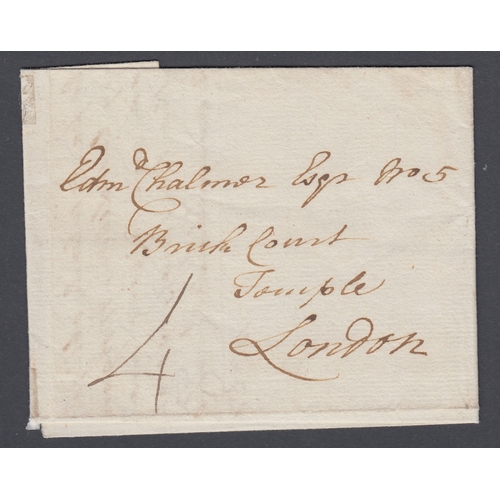 Edmd Chalmer Esqr No 5
Brick Court
Temple
London
4